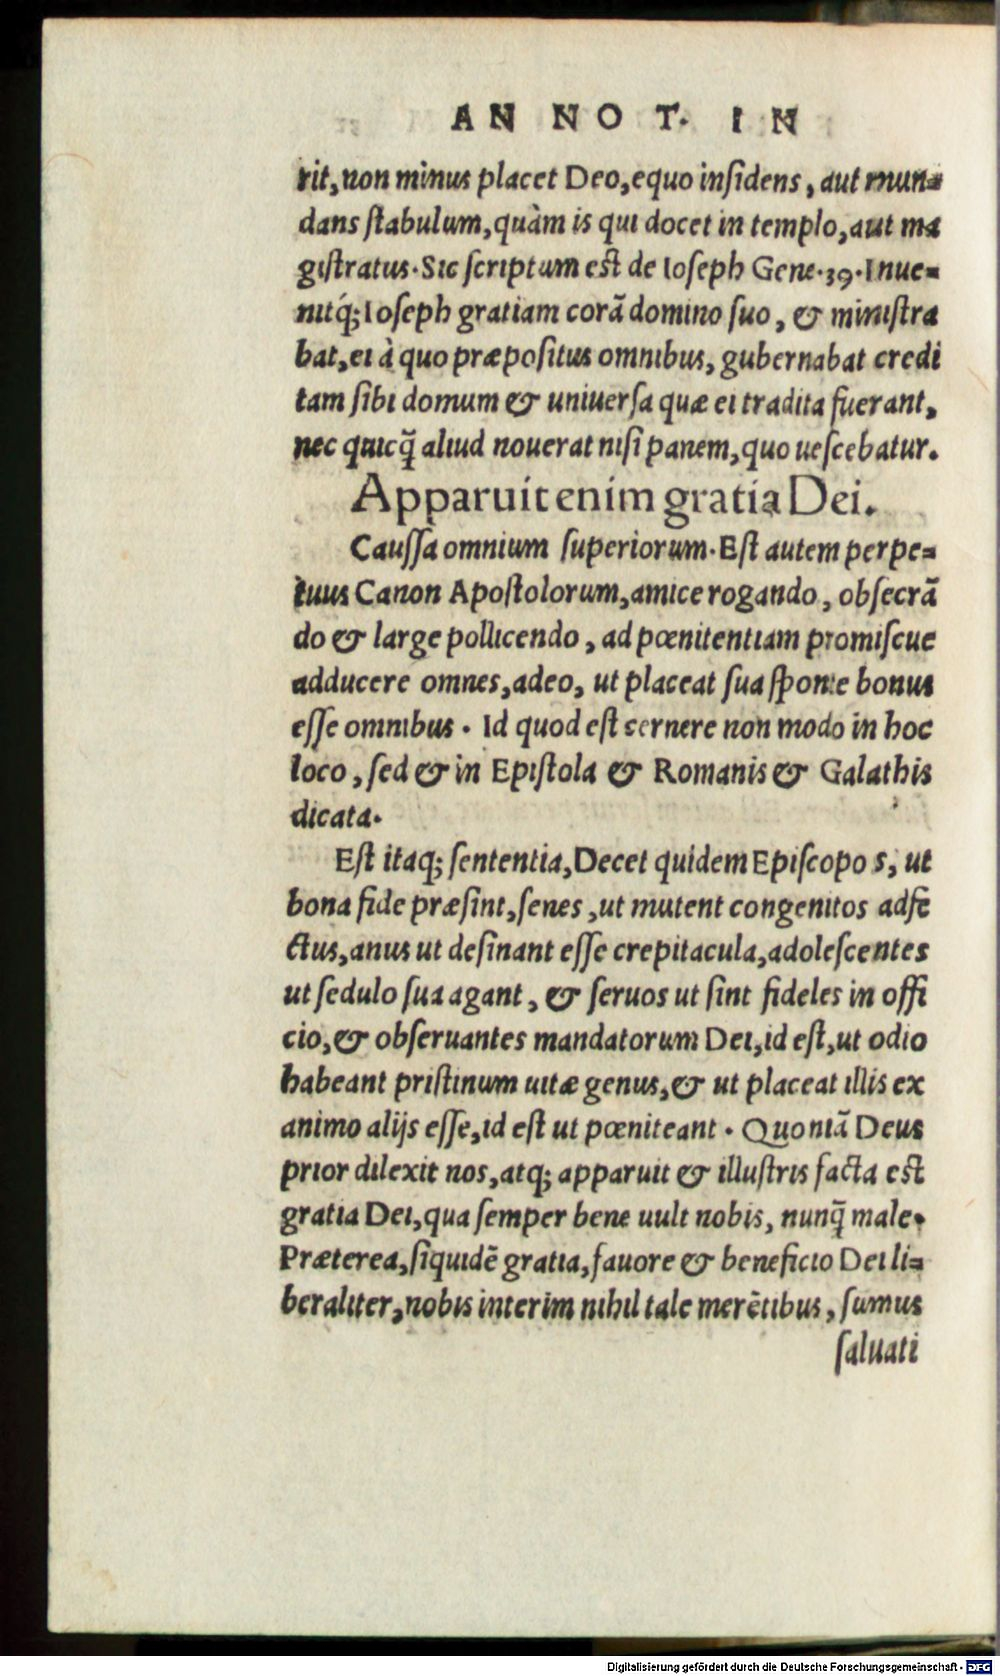 ANNOT. IN
rit, non minus placet Deo, equo insidens, aut mun-
dans stabulum, quàm is qui docet in templo, aut ma
gistratus. Sic scriptum est de Ioseph Gene. 39. Inue-
nitq́; Ioseph gratiam corã domino suo, & ministra
bat, ei à quo præpositus omnibus, gubernabat credi
tam sibi domum & uniuersa quæ ei tradita fuerant,
nec quicq̃ aliud nouerat nisi panem, quo uescebatur.
Apparuit enim gratia Dei.
Caussa omnium superiorum. Est autem perpe-
tuus Canon Apostolorum, amice rogando, obsecrã
do & large pollicendo, ad pœnitentiam promiscue
adducere omnes, adeo, ut placeat sua sponte bonus
esse omnibus. Id quod est cernere non modo in hoc
loco, sed & in Epistola & Romanis & Galathis
dicata.
Est itaq; sententia, Decet quidem Episcopos, ut
bona fide præsint, senes, ut mutent congenitos adfe
ctus, anus ut desinant esse crepitacula, adolescentes
ut sedulo sua agant, & seruos ut sint fideles in offi
cio, & obseruantes mandatorum Dei, id est, ut odio
habeant pristinum uitæ genus, & ut placeat illis ex
animo alijs esse, id est ut pœniteant. Quoniã Deus
prior dilexit nos, atq; apparuit & illustris facta est
gratia Dei, qua semper bene uult nobis, nunq̃ male.
Præterea, siquidẽ gratia, fauore & beneficio Dei li-
beraliter, nobis interim nihil tale merẽtibus, sumus
saluati
Digitalisierung gefördert durch die Deutsche Forschungsgemeinschaft - DFG